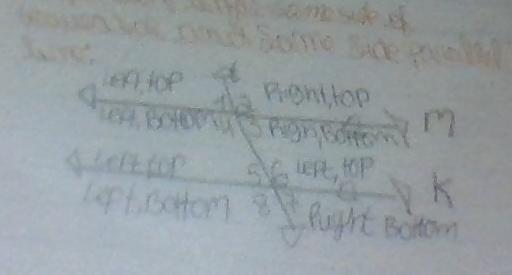 same side of
and same side parallel
line.
Left, top
Right, top
1 2
Left, Bottom 4 3 Right, Bottom
M
Left, top
5 6 Left, top
K
Left, Bottom 8 7
Right Bottom